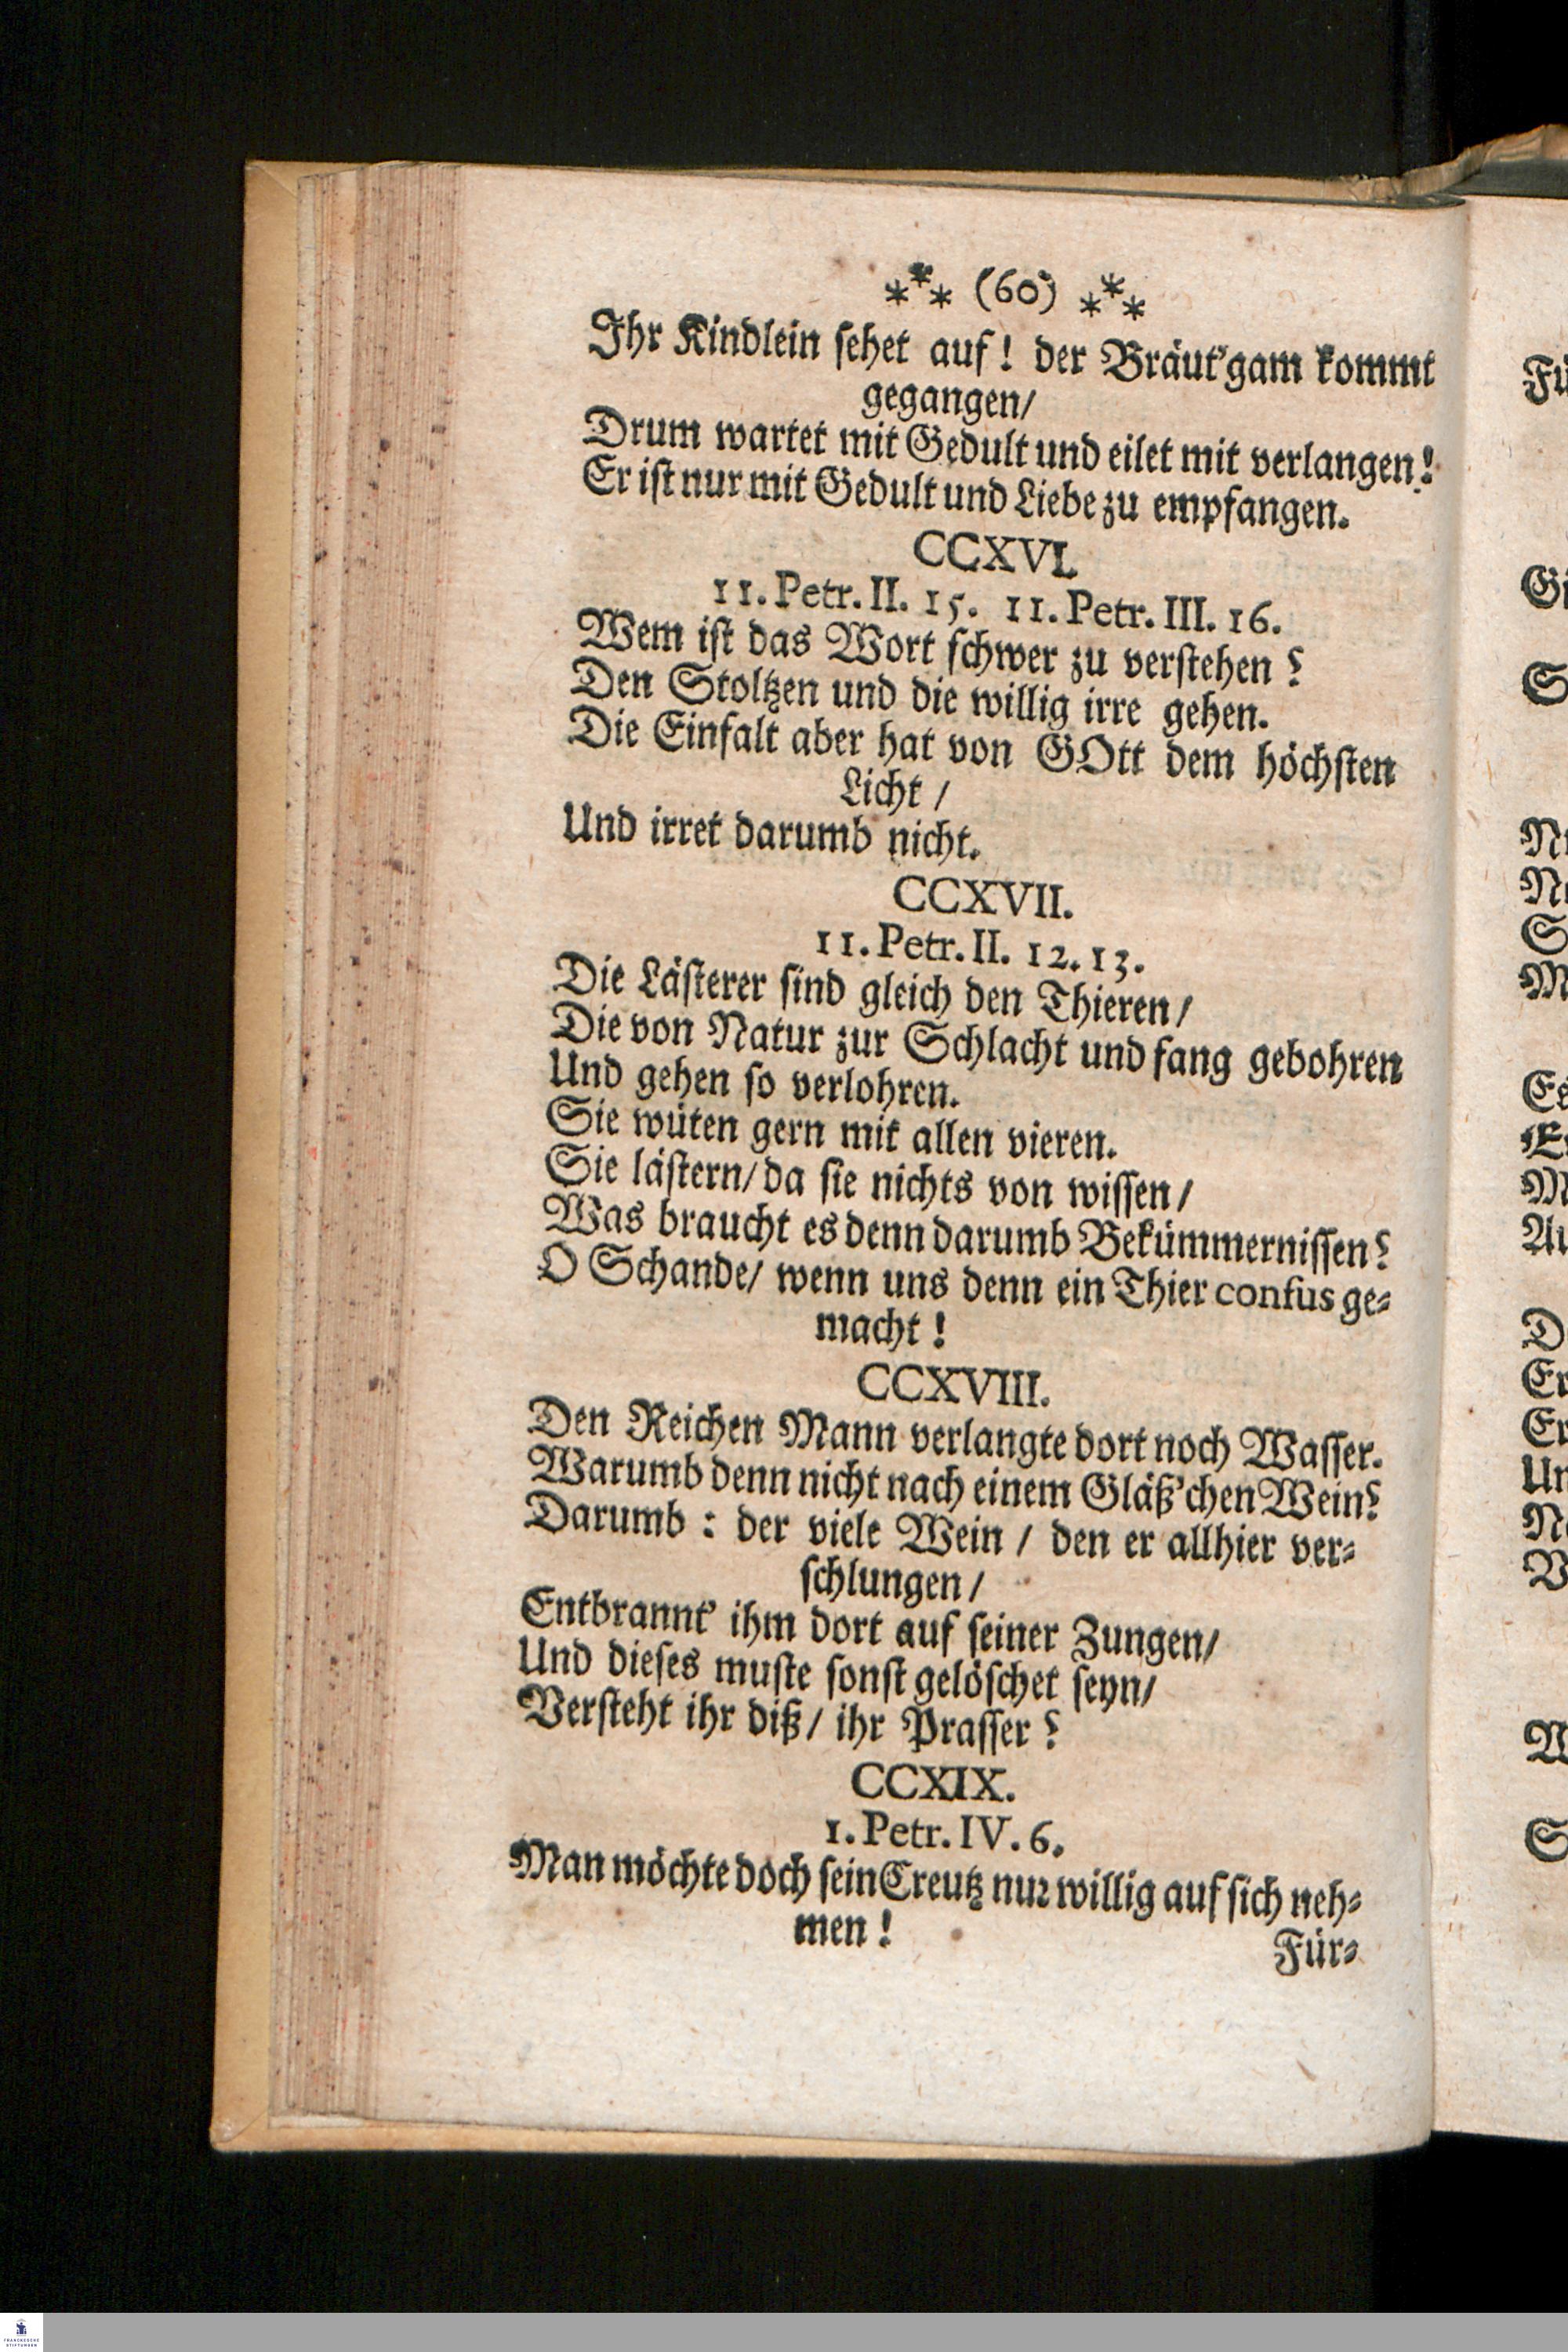 *** (60) ***
Ihr Kindlein sehet auf! der Bräut'gam kommt
gegangen/
Drum wartet mit Gedult und eilet mit verlangen!
Er ist nur mit Gedult und Liebe zu empfangen.
CCXVI.
11. Petr. II. 15. 11. Petr. III. 16.
Wem ist das Wort schwer zu verstehen?
Den Stoltzen und die willig irre gehen.
Die Einfalt aber hat von GOtt dem höchsten
Licht /
Und irret darumb nicht.
CCXVII.
11. Petr. II. 12. 13.
Die Lästerer sind gleich den Thieren/
Die von Natur zur Schlacht und fang gebohren
Und gehen so verlohren.
Sie wüten gern mit allen vieren.
Sie lästern/ da sie nichts von wissen/
Was braucht es denn darumb Bekümmernissen?
O Schande/ wenn uns denn ein Thier confus ge-
macht!
CCXVIII.
Den Reichen Mann verlangte dort noch Wasser.
Warumb denn nicht nach einem Gläß'chen Wein?
Darumb: der viele Wein / den er allhier ver-
schlungen/
Entbrannt' ihm dort auf seiner Zungen/
Und dieses muste sonst gelöschet seyn/
Versteht ihr diß/ ihr Prasser?
CCXIX.
1. Petr. IV. 6.
Man möchte doch sein Creutz nur willig auf sich neh-
men!
Für-
Fü
Gi
S
S
M
Es
M
Au
D
Er
Er
Un
V
S
FRANCKESCHE
STIFTUNGEN